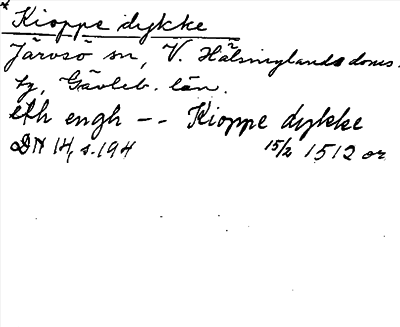 * Kioppe dykke
Järvsö sn, V. Hälsinglands doms.
hg, Gävleb. län.
eth engh -- Kioppe dykke
DN 14, s. 194 15/2 1512 or